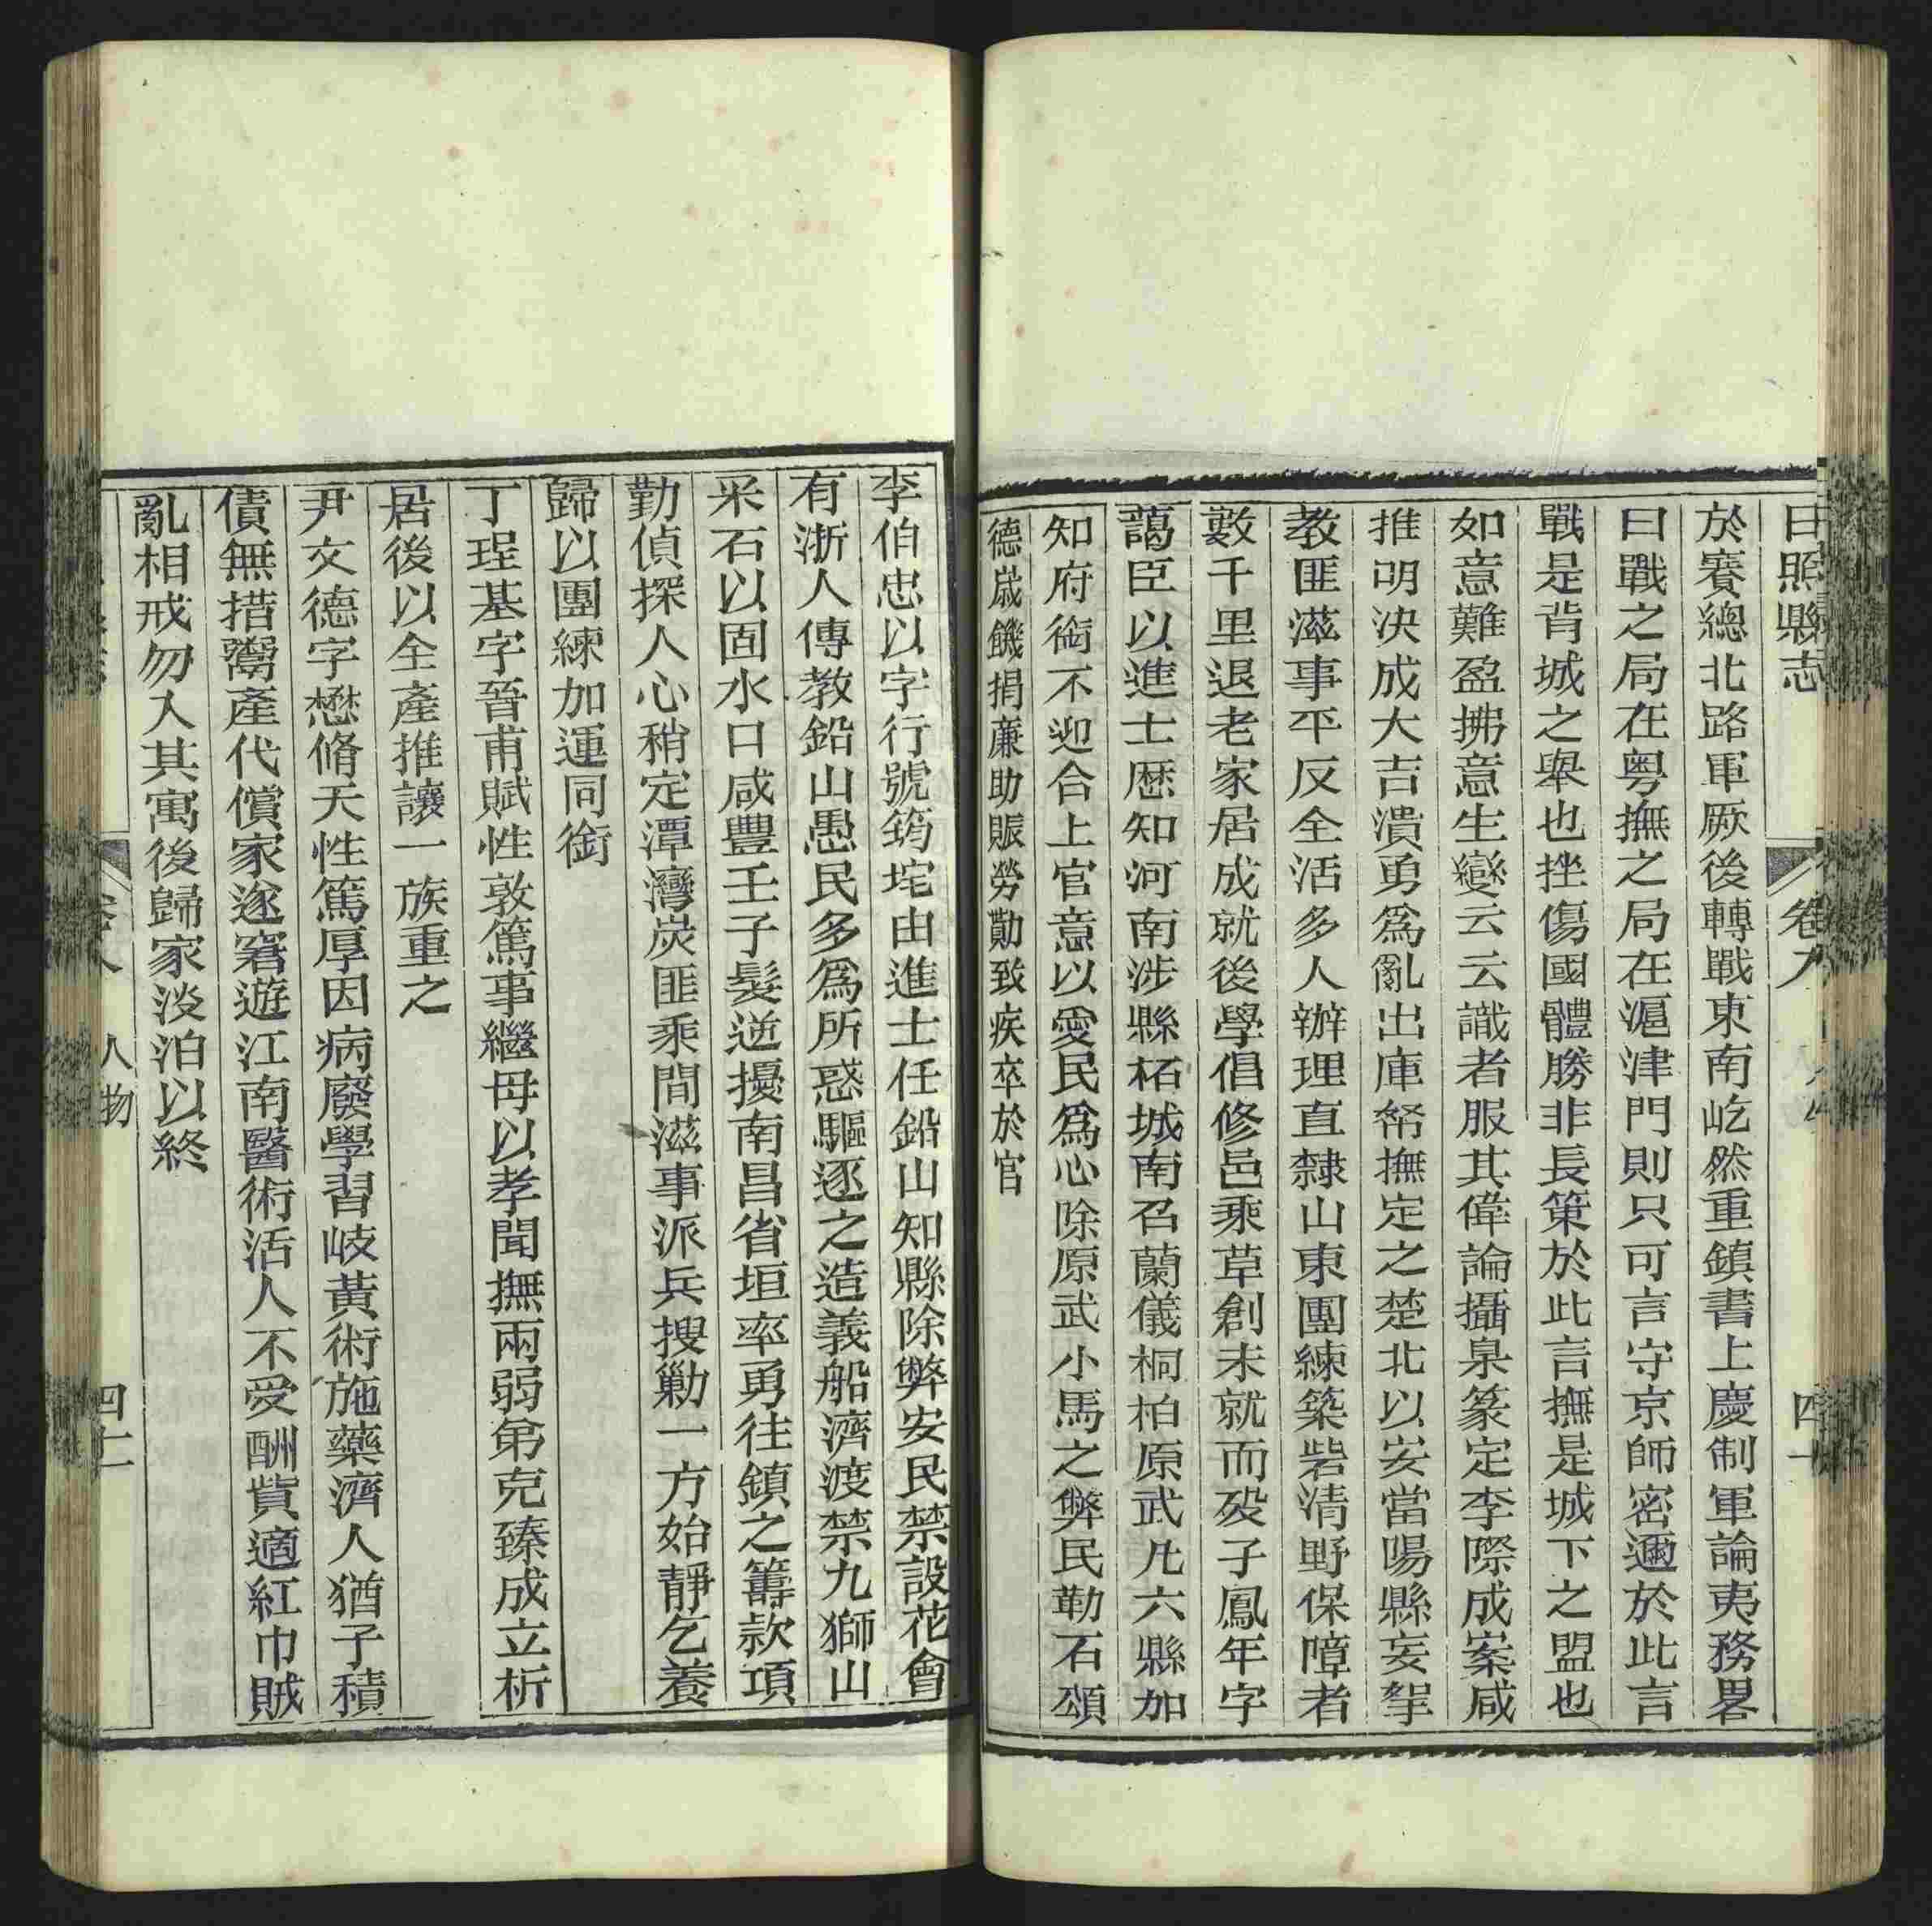 日照縣志 卷八 四十
於賽總北路軍厥後轉戰東南屹然重鎮書上慶制軍論夷務畧
曰戰之局在粤撫之局在滬津門則只可言守京師密邇於此言
戰是背城之舉也挫傷國體勝非長策於此言撫是城下之盟也
如意難盈拂意生變云云識者服其偉論攝臬篆定李際成案咸
推明決成大吉潰勇爲亂出庫帑撫定之楚北以安當陽縣妄拏
教匪滋事平反全活多人辦理直隸山東團練築砦清野保障者
數千里退老家居成就後學倡修邑乘草創未就而歿子鳳年字
藹臣以進士歷知河南涉縣柘城南召蘭儀桐柏原武凡六縣加
知府銜不迎合上官意以愛民爲心除原武小馬之弊民勒石頌
德歲饑捐廉助賑勞勩致疾卒於官
李伯忠以字行號筠坨由進士任鉛山知縣除弊安民禁設花會
有浙人傳教鉛山愚民多爲所惑驅逐之造義船濟渡禁九獅山
采石以固水口咸豐壬子髮逆擾南昌省垣率勇往鎮之籌款項
勤偵探人心稍定潭灣炭匪乘間滋事派兵搜勦一方始靜乞養
歸以團練加運同銜
丁珵基字晉甫賦性敦篤事繼母以孝聞撫兩弱弟克臻成立析
居後以全產推讓一族重之
尹文德字懋脩天性篤厚因病廢學習岐黃術施藥濟人猶子積
債無措鬻產代償家遂窘遊江南醫術活人不受酬貲適紅巾賊
亂相戒勿入其寓後歸家淡泊以終
人物 四十一